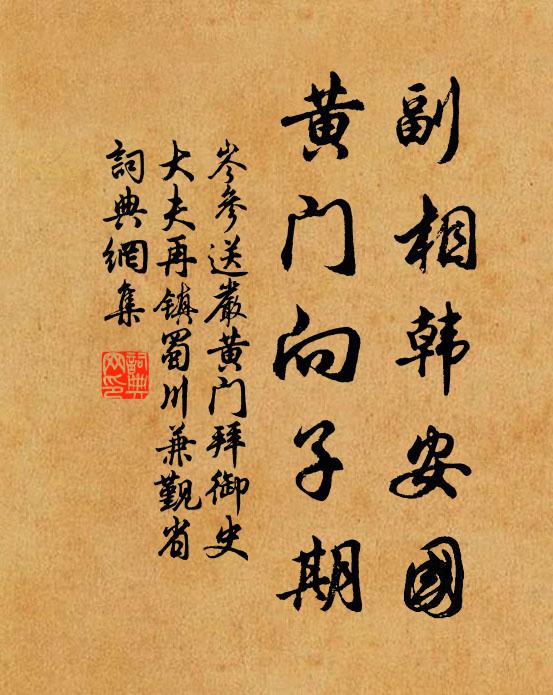 副相韩安國
黄门向子期
岑參送嚴黄门拜御史
大夫再镇蜀川兼觐省
詞典網集
詞典網印